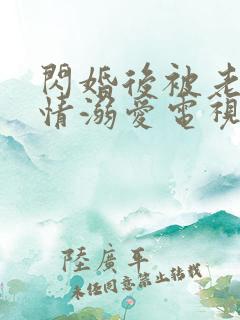 閃婚後被老
情溺愛電視
陸廣平
未经同意禁止转载